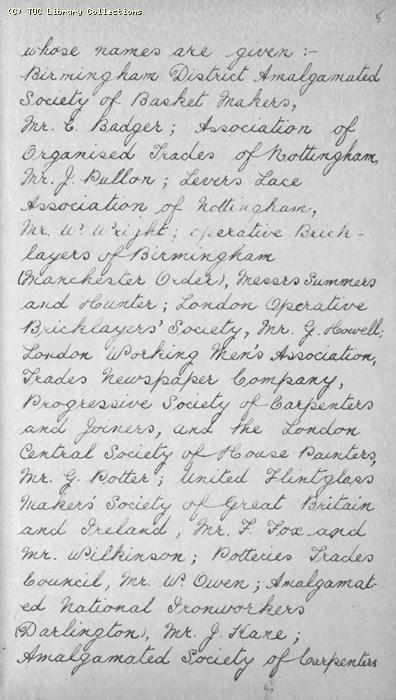 (C) TUC Library Collections
5
whose names are given :-
Birmingham District Amalgamated
Society of Basket Makers,
Mr. C. Badger ; Association of
Organised Trades of Nottingham,
Mr. J. Bullon ; Levers Lace
Association of Nottingham,
Mr. W. Wright ; Operative Brick-
layers of Birmingham
(Manchester Order), Messrs Summers
and Hunter ; London Operative
Bricklayers' Society, Mr. G. Howell;
London Working Men's Association,
Trades Newspaper Company,
Progressive Society of Carpenters
and Joiners, and the London
Central Society of House Painters,
Mr. G. Potter ; United Flintglass
Makers' Society of Great Britain
and Ireland, Mr. F. Fox and
Mr. Wilkinson ; Potteries Trades
Council, Mr. W. Owen ; Amalgamat-
ed National Ironworkers
(Darlington), Mr. J. Kane ;
Amalgamated Society of Carpenters